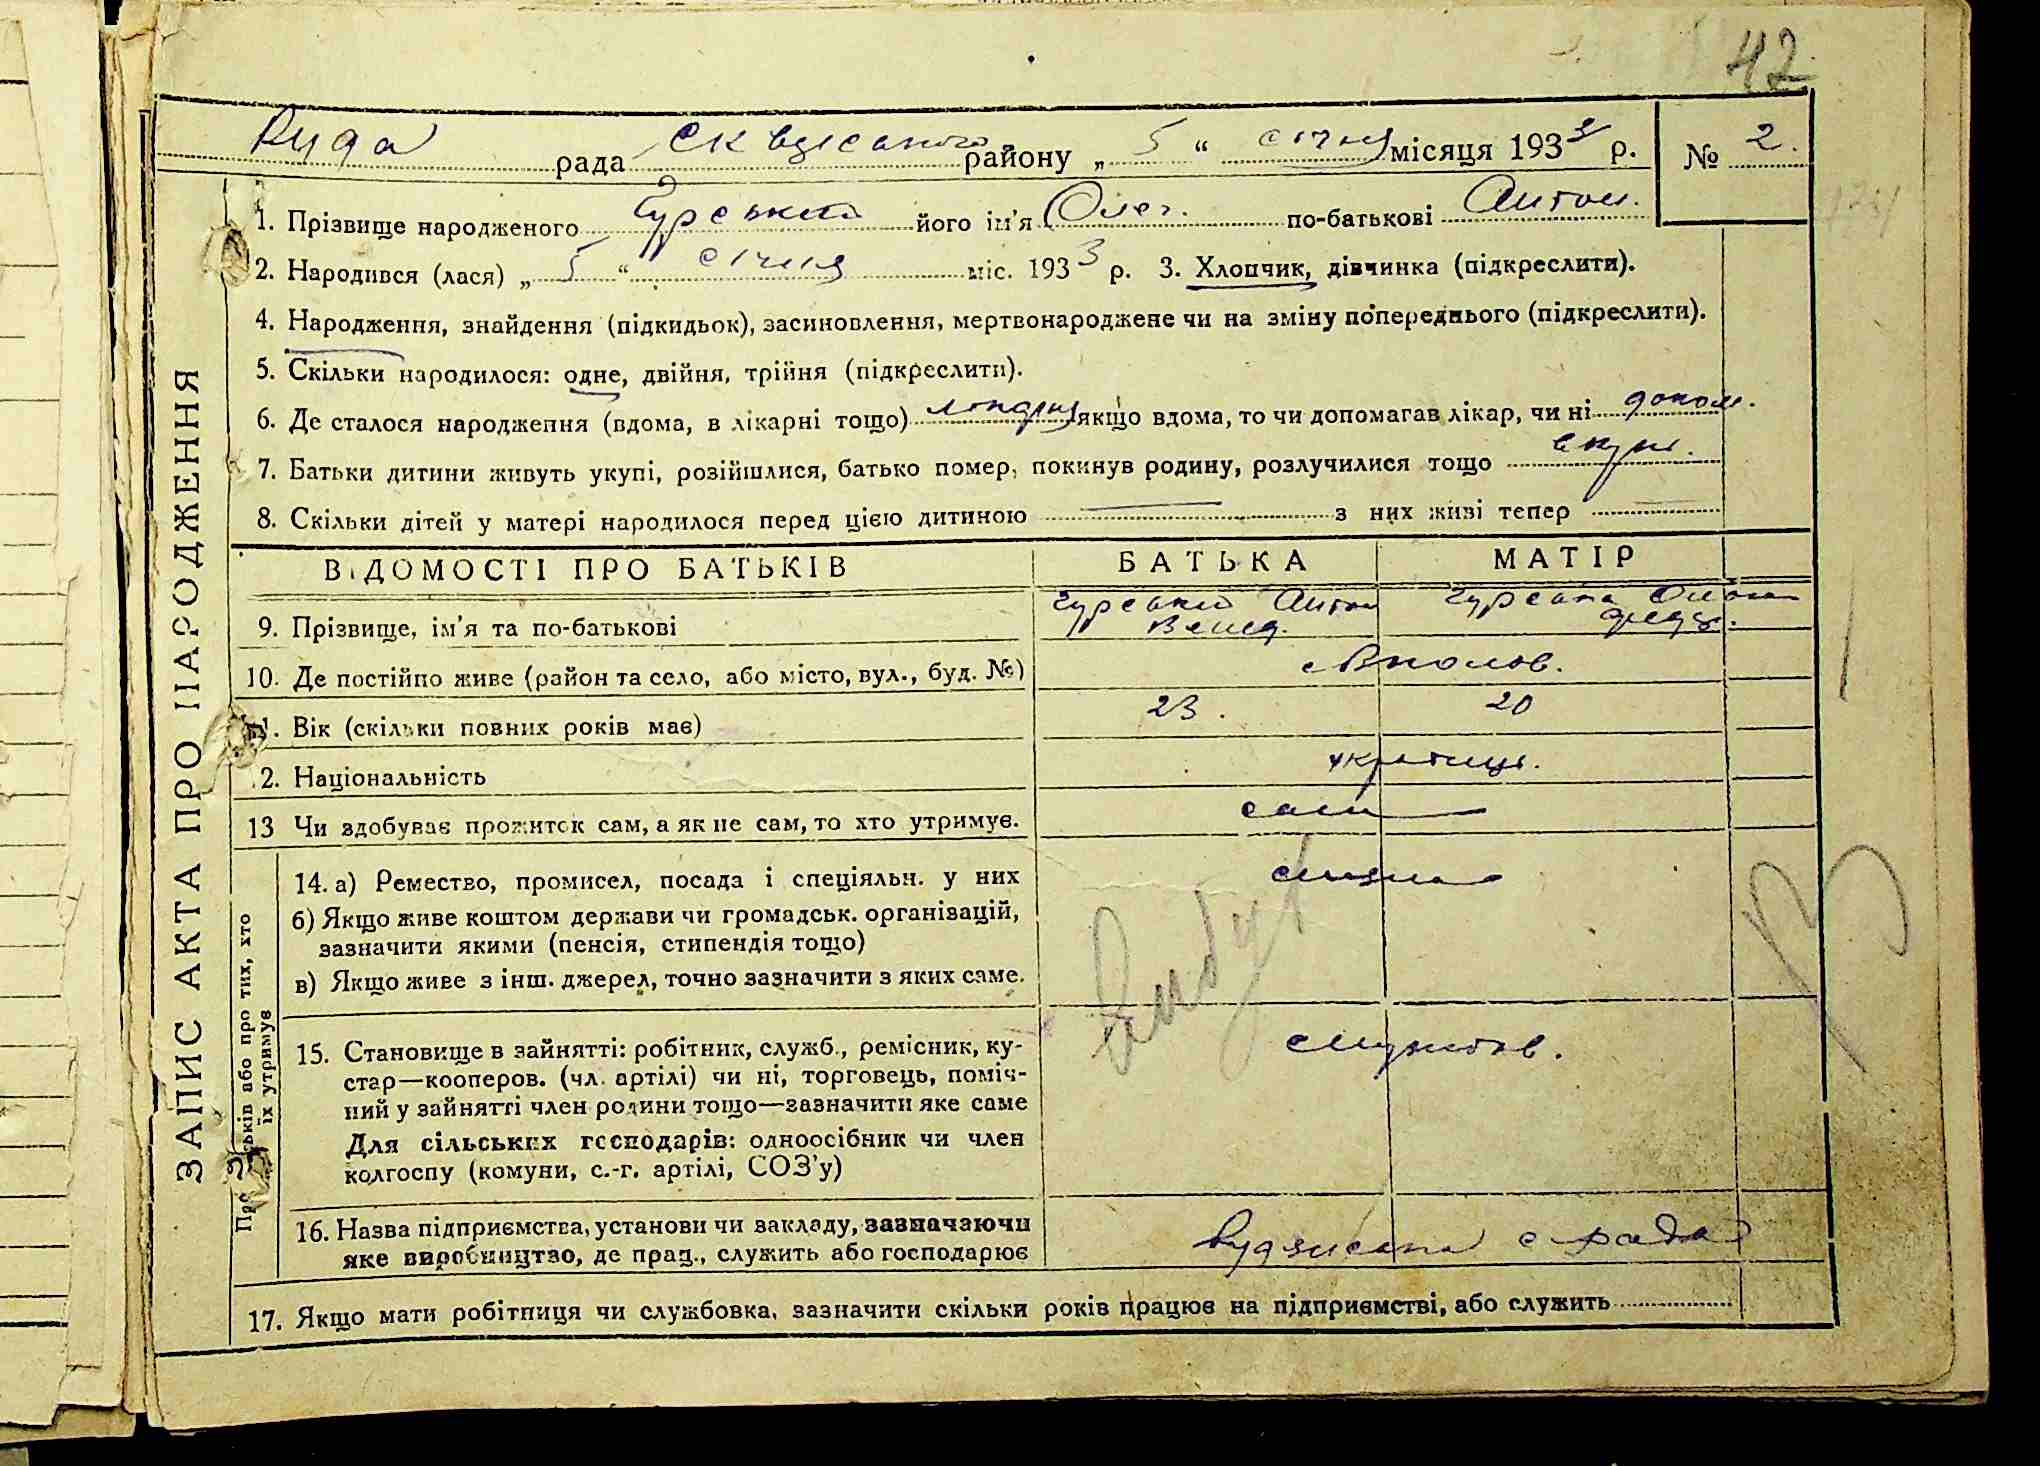 42
Руда рада Сквирського району „ 5 “ січня місяця 1933 р. № 2.
1. Прізвище народженого Гурський його ім'я Олег. по-батькові Антон.
2. Народився (лася) „ 5 “ січня міс. 1933 р. 3. Хлопчик, дівчинка (підкреслити).
4. Народження, знайдення (підкидьок), засиновлення, мертвонароджене чи на зміну попереднього (підкреслити).
5. Скільки народилося: одне, двійня, трійня (підкреслити).
6. Де сталося народження (вдома, в лікарні тощо) якщо вдома, то чи допомагав лікар, чи ні допом.
7. Батьки дитини живуть укупі, розійшлися, батько помер, покинув родину, розлучилися тощо вкупі.
8. Скільки дітей у матері народилося перед цією дитиною — з них живі тепер
ЗАПИС АКТА ПРО НАРОДЖЕННЯ
ВІДОМОСТІ ПРО БАТЬКІВ БАТЬКА МАТІР
9. Прізвище, ім'я та по-батькові Гурський Антон Гурська
10. Де постійно живе (район та село, або місто, вул., буд. №)
11. Вік (скільки повних років має) 23. 20
12. Національність українц.
13 Чи здобуває прожиток сам, а як не сам, то хто утримує. сам
Про батьків або про тих, хто їх утримує
14. а) Ремество, промисел, посада і спеціяльн. у них
б) Якщо живе коштом держави чи громадськ. організацій,
зазначити якими (пенсія, стипендія тощо)
в) Якщо живе з інш. джерел, точно зазначити з яких саме.
Вибув
15. Становище в зайнятті: робітник, служб., ремісник, ку-
стар—кооперов. (чл. артілі) чи ні, торговець, поміч-
ний у зайнятті член родини тощо—зазначити яке саме
Для сільських господарів: одноосібник чи член
колгоспу (комуни, с.-г. артілі, СОЗ'у)
16. Назва підприємства, установи чи закладу, зазначаючи
яке виробництво, де прац., служить або господарює с рада
17. Якщо мати робітниця чи службовка, зазначити скільки років працює на підприємстві, або служить